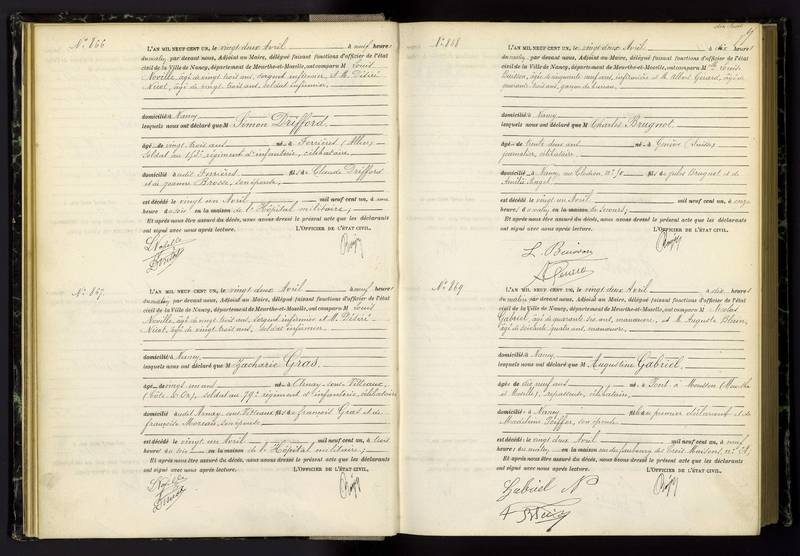 No 866
L'AN MIL NEUF CENT UN, le vingt deux Avril à neuf heures
du matin, par devant nous, Adjoint au Maire, délégué faisant fonctions d'officier de l'état
civil de la Ville de Nancy, département de Meurthe-et-Moselle, ont comparu M Louis
Noville, âgé de vingt trois ans, sergent infirmier, et M. Désiré
Nicot, âgé de vingt trois ans, soldat infirmier,
domiciliés à Nancy
lesquels nous ont déclaré que M Simon Drifford
âgé de vingt trois ans né à Ferrières (Allier)
soldat au régiment d'infanterie, célibataire
domicilié audit Ferrières fils de Claude Drifford
et de Jeanne Brosse, son épouse,
est décédé le vingt un Avril mil neuf cent un, à
heures du soir en la maison de l'Hôpital militaire;
Et après nous être assuré du décès, nous avons dressé le présent acte que les déclarants
ont signé avec nous après lecture. L'OFFICIER DE L'ÉTAT CIVIL,
No 867
L'AN MIL NEUF CENT UN, le vingt deux Avril à neuf heures
du matin, par devant nous, Adjoint au Maire, délégué faisant fonctions d'officier de l'état
civil de la Ville de Nancy, département de Meurthe-et-Moselle, ont comparu M Louis
Noville, âgé de vingt trois ans, sergent infirmier et M. Désiré
Nicot, âgé de vingt trois ans, soldat infirmier
domiciliés à Nancy
lesquels nous ont déclaré que M Zacharie Gras
âgé de vingt un ans né à Arnay-sous-Vitteaux,
(Côte d'Or), soldat au 79e régiment d'infanterie, célibataire
domicilié audit Arnay-sous-Vitteaux fils de François Gras et de
Françoise Moreau, son épouse
est décédé le vingt un Avril mil neuf cent un, à trois
heures du soir en la maison de l'Hôpital militaire;
Et après nous être assuré du décès, nous avons dressé le présent acte que les déclarants
ont signé avec nous après lecture. L'OFFICIER DE L'ÉTAT CIVIL,
No 868
L'AN MIL NEUF CENT UN, le vingt deux Avril à dix heures
du matin, par devant nous, Adjoint au Maire, délégué faisant fonctions d'officier de l'état
civil de la Ville de Nancy, département de Meurthe-et-Moselle, ont comparu M Louis
Buisson, âgé de cinquante neuf ans, infirmier et M. Albert Gérard, âgé de
quarante trois ans, garçon de bureau,
domiciliés à Nancy
lesquels nous ont déclaré que M Charles Brugnot
âgé de trente deux ans né à Genève (Suisse)
journalier, célibataire
domicilié à Nancy, fils de Jules Brugnot et de
est décédé le vingt un Avril mil neuf cent un, à onze
heures du matin en la maison de Secours;
Et après nous être assuré du décès, nous avons dressé le présent acte que les déclarants
ont signé avec nous après lecture. L'OFFICIER DE L'ÉTAT CIVIL,
L. Buisson
No 869
L'AN MIL NEUF CENT UN, le vingt deux Avril à dix heures
du matin, par devant nous, Adjoint au Maire, délégué faisant fonctions d'officier de l'état
civil de la Ville de Nancy, département de Meurthe-et-Moselle, ont comparu M Nicolas
Gabriel, âgé de quarante six ans, manœuvre, et M. Auguste
âgé de soixante quatre ans, manœuvre,
domiciliés à Nancy
lesquels nous ont déclaré que M Augustine Gabriel
âgée de dix neuf ans née à Pont à Mousson (Meurthe
et Moselle), repasseuse, célibataire
domiciliée à Nancy fille du premier déclarant et de
Madeleine son épouse
est décédée le vingt deux Avril mil neuf cent un, à neuf
heures du matin en la maison rue du faubourg des Trois Maisons, no
Et après nous être assuré du décès, nous avons dressé le présent acte que les déclarants
ont signé avec nous après lecture. L'OFFICIER DE L'ÉTAT CIVIL,
Gabriel N